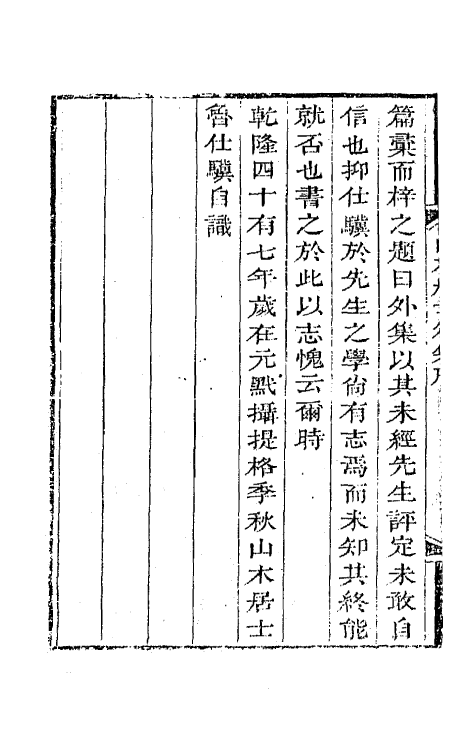 篇稾而梓之題曰外集以其未經先生評定未敢自
信也抑仕驥於先生之學尙有志焉而未知其終能
就否也書之於此以志愧云爾時
乾隆四十有七年歲在元黓攝提格季秋山木居士
魯仕驥自識